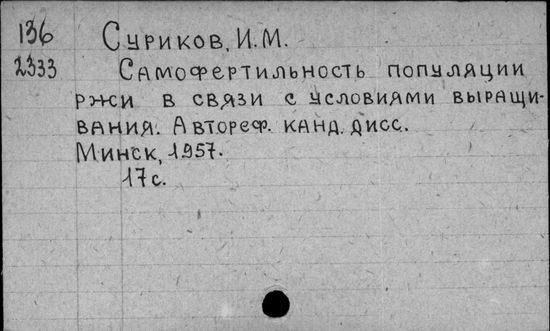 136 Суриков, И.М.
2333 Самофертильность популяции
ржи в связи с условиями выращи-
вания. Автореф. канд. дисс.
Минск, 1957.
17с.